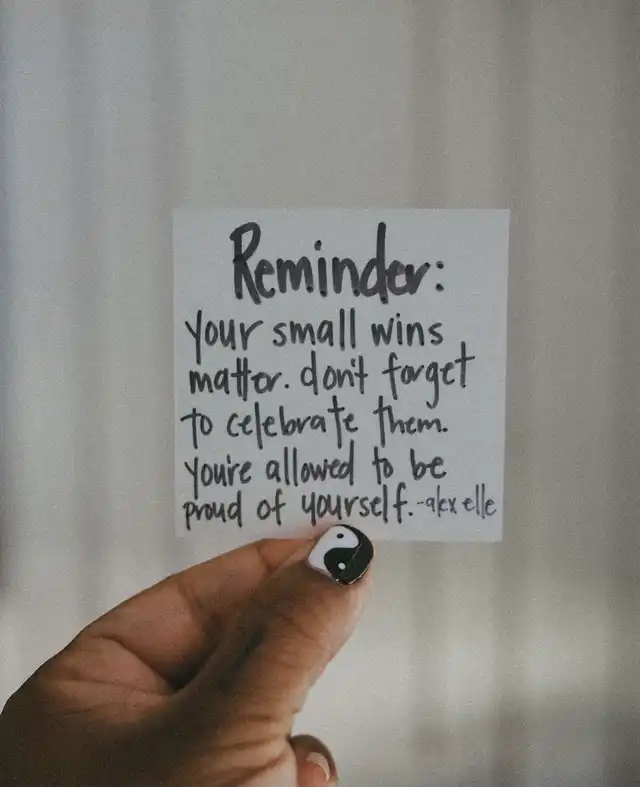 Reminder:
your small wins
matter. don't forget
to celebrate them.
you're allowed to be
proud of yourself. -alex elle